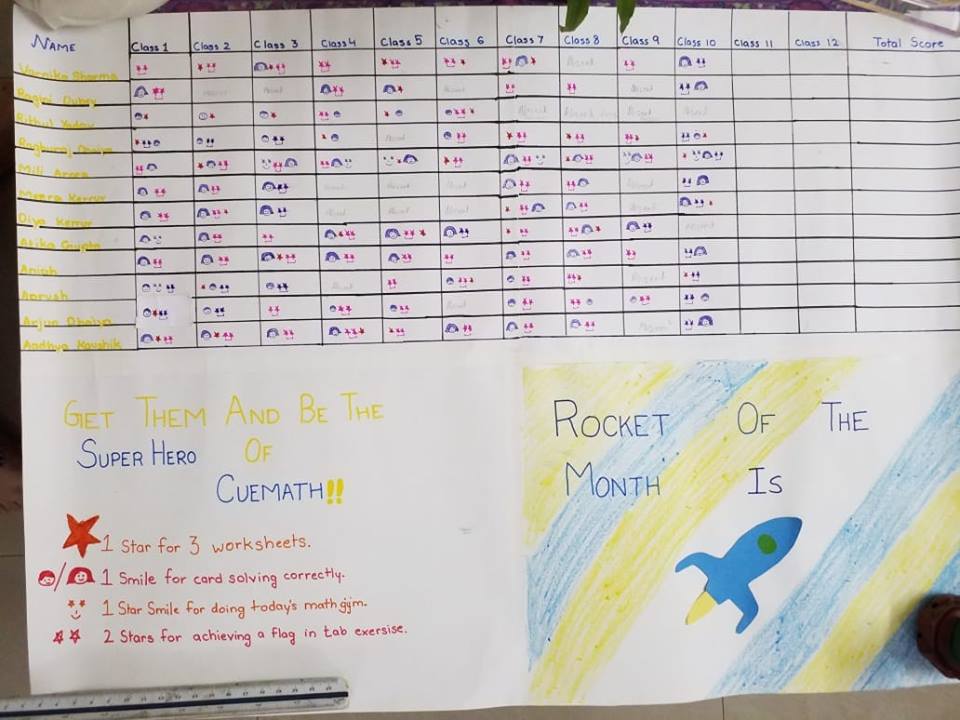 NAME Class 1 Class 2 Class 3 Class 4 Class 5 Class 6 Class 7 Class 8 Class 9 Class 10 Class 11 Class 12 Total Score
Varnika Sharma Absent
Absent Absent Absent Absent
Absent Absent Absent
Absent
Mili Arora
Absent Absent Absent Absent
Diya Absent Absent Absent Absent
Gupta Absent
Anish
Absent Absent
Arjun Absent
Aadhya Kaushik
GET THEM AND BE THE
SUPER HERO OF
CUEMATH!!
1 Star for 3 worksheets.
/ 1 Smile for card solving correctly.
1 Star Smile for doing today's math gym.
2 Stars for achieving a flag in tab exersise.
ROCKET OF THE
MONTH IS